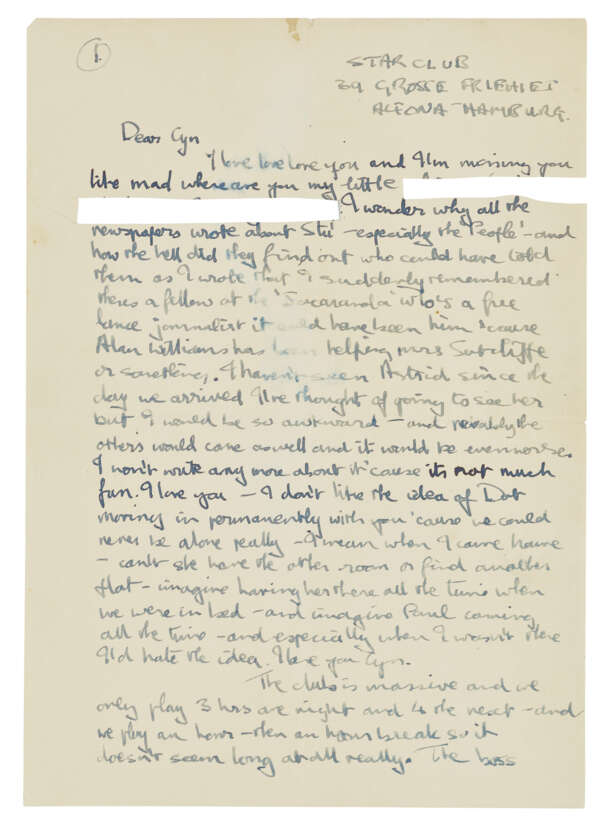 1.
STAR CLUB
39 GROSSE FREIHEIT
ALTONA HAMBURG.
Dear Cyn
I love love love you and I'm missing you
like mad where are you my little
I wonder why all the
newspapers wrote about Stu - especially the 'People' - and
how the hell did they find out who could have told
them as I wrote that I suddenly remembered
theres a fellow at the 'Jacaranda' who's a free
lance journalist it could have been him 'cause
Alan Williams has been helping mrs Sutcliffe
or something. I haven't seen Astrid since the
day we arrived I've thought of going to see her
but I would be so awkward - and probably the
others would come aswell and it would be even worse.
I won't write any more about it 'cause its not much
fun. I love you - I don't like the idea of Dot
moving in permanently with you 'cause we could
never be alone really - I mean when I come home
- can't she have the other room or find another
flat - imagine having her there all the time when
we were in bed - and imagine Paul coming
all the time - and especially when I wasn't there
I'd hate the idea. I love you Cyn.
The club is massive and we
only play 3 hrs one night and 4 the next - and
we play an hour - then an hours break so it
doesn't seem long at all really. The boss